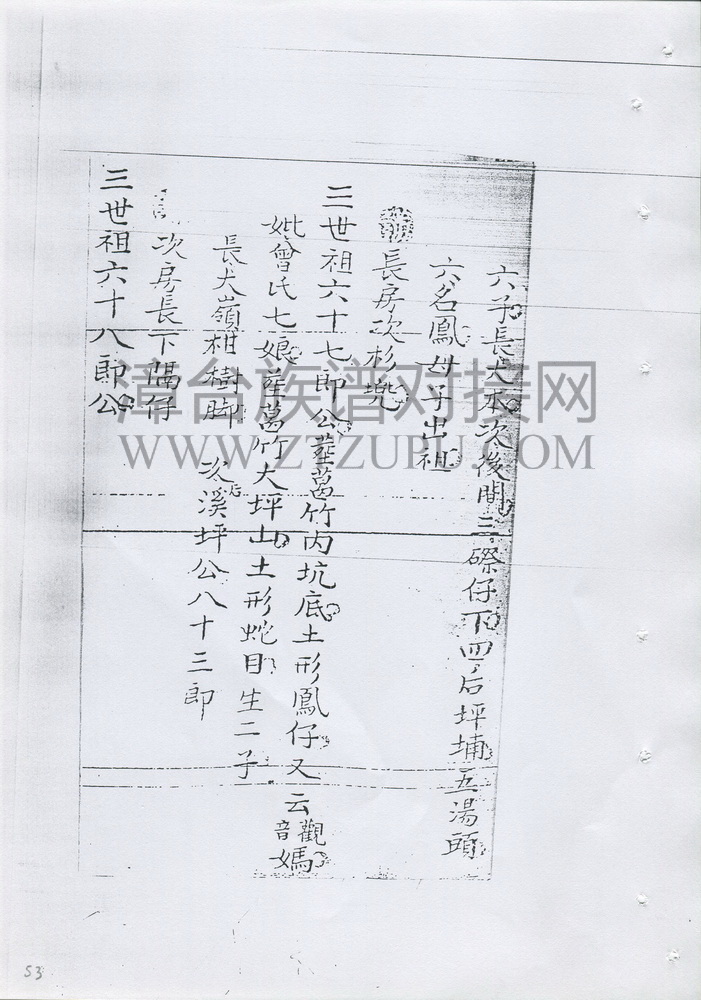 六子長大禾次後間三磜仔下四后坪埔五湯頭
六名鳳母子出祖
長房次杉兠
三世祖六十七郎公塟葛竹内坑底土形鳳仔又云觀音媽
妣曾氏七娘塟葛竹大坪山土形蛇目生二子
長大嶺柑樹脚 次后溪坪公八十三郎
次房長下隔仔
三世祖六十八郎公
漳台族谱对接网
WWW.ZTZUPU.COM
53